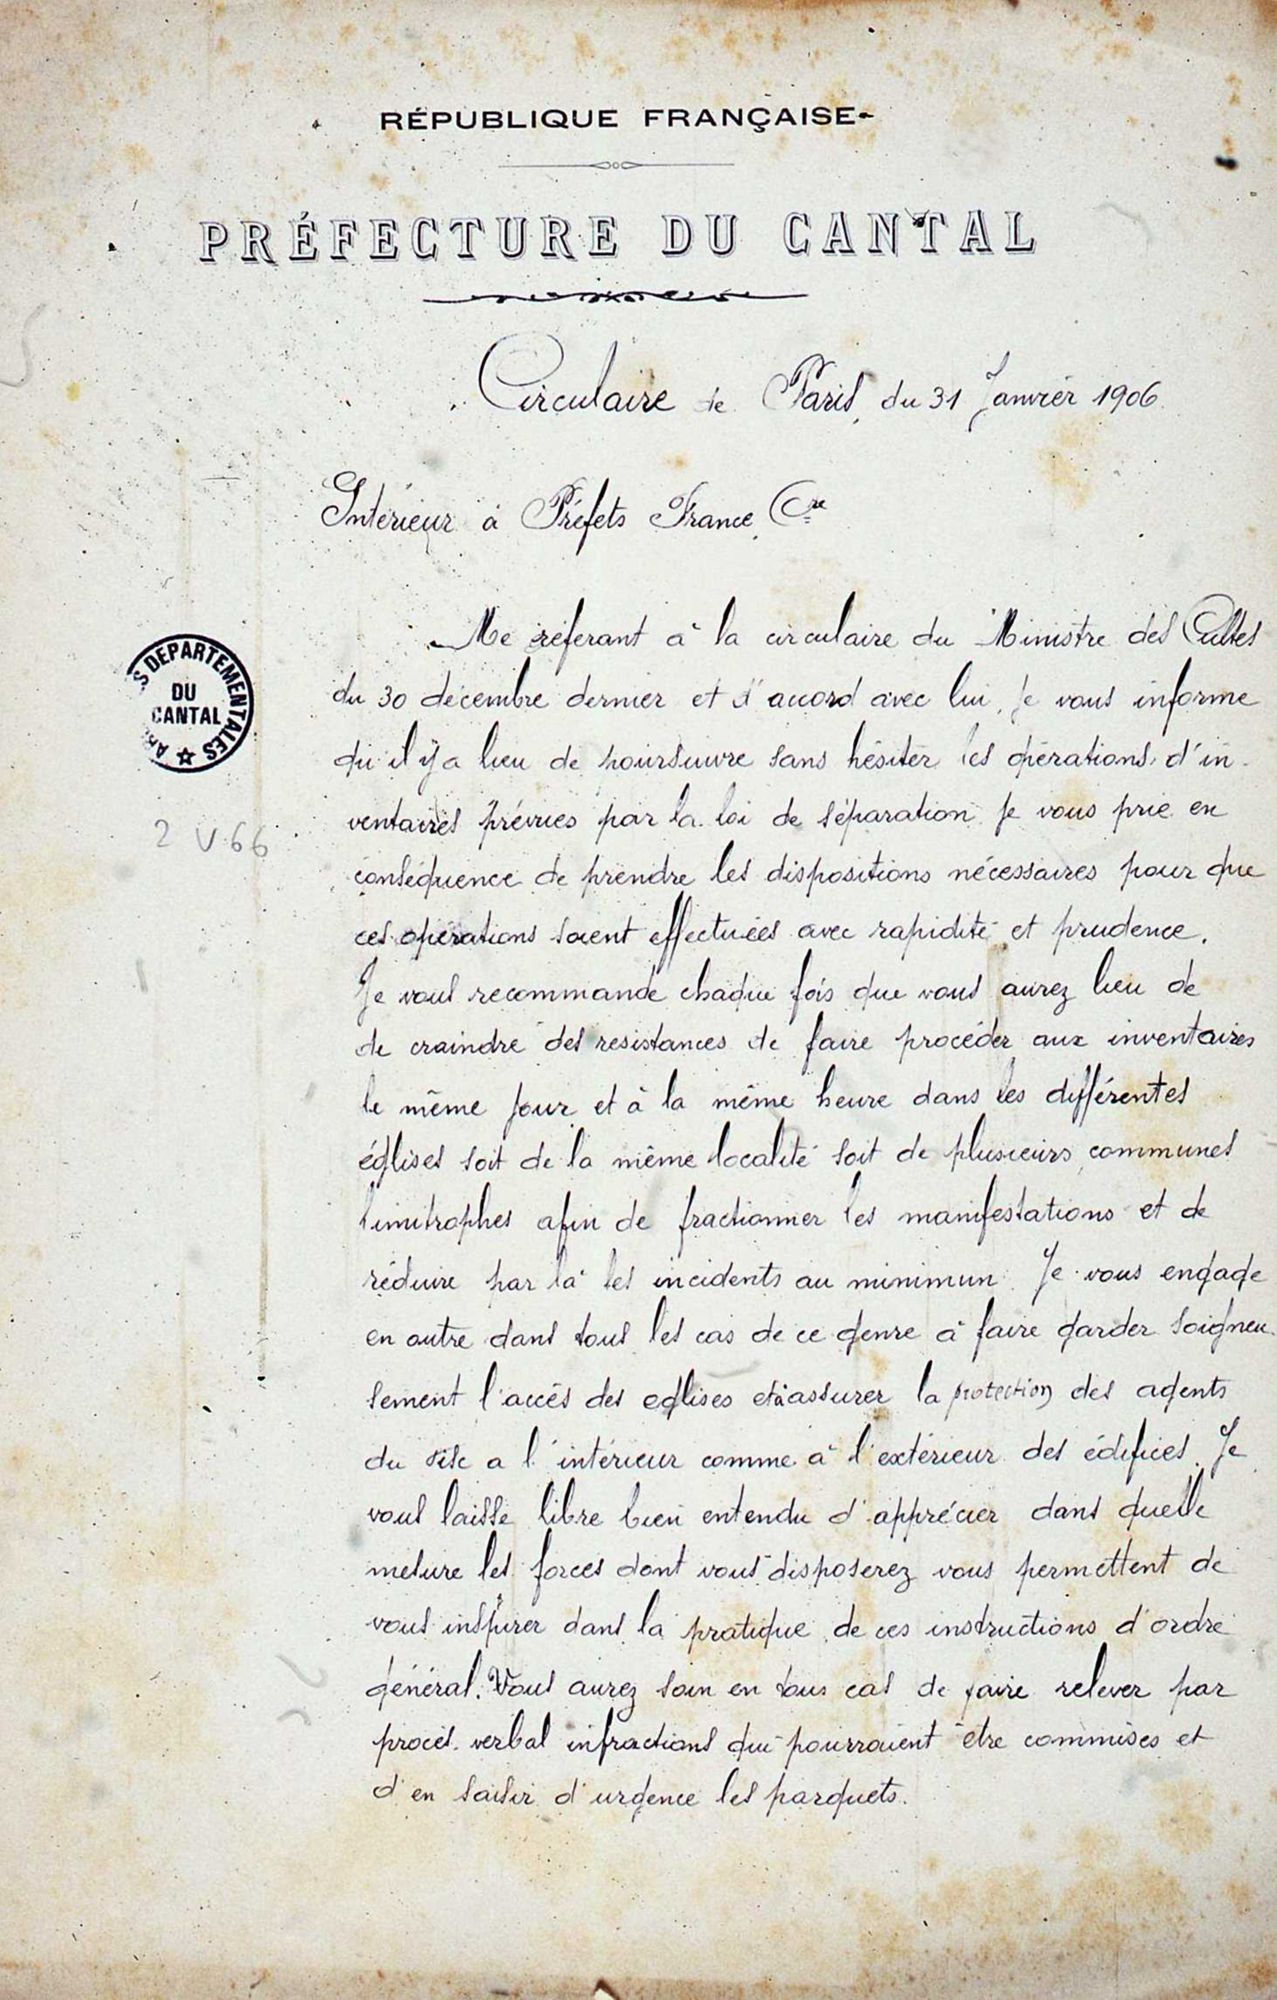 RÉPUBLIQUE FRANÇAISE
PRÉFECTURE DU CANTAL
Circulaire de Paris, du 31 Janvier 1906
Intérieur à Préfets France Cre
Me réferant à la circulaire du Ministre des Cultes
du 30 décembre dernier et d'accord avec lui, je vous informe
qu'il y a lieu de poursuivre sans hésiter les opérations d'in-
ventaires prévues par la loi de séparation. Je vous prie en
conséquence de prendre les dispositions nécessaires pour que
ces opérations soient effectuées avec rapidité et prudence.
Je vous recommande chaque fois que vous aurez lieu de
de craindre des résistances de faire procéder aux inventaires
le même jour et à la même heure dans les différentes
églises soit de la même localité soit de plusieurs communes
limitrophes afin de fractionner les manifestations et de
réduire par là les incidents au minimun. Je vous engage
en outre dans tous les cas de ce genre à faire garder soigneu
sement l'accès des eglises et à assurer la protection des agents
du fisc a l'intérieur comme à l'extérieur des édifices. Je
vous laisse libre bien entendu d'apprécier dans quelle
mesure les forces dont vous disposerez vous permettent de
vous inspirer dans la pratique de ces instructions d'ordre
général. Vous aurez soin en tous cas de faire relever par
procès-verbal infractions qui pourraient être commises et
d'en saisir d'urgence les parquets.
S DEPARTEMENTALES
DU
CANTAL
AR
2 V 66